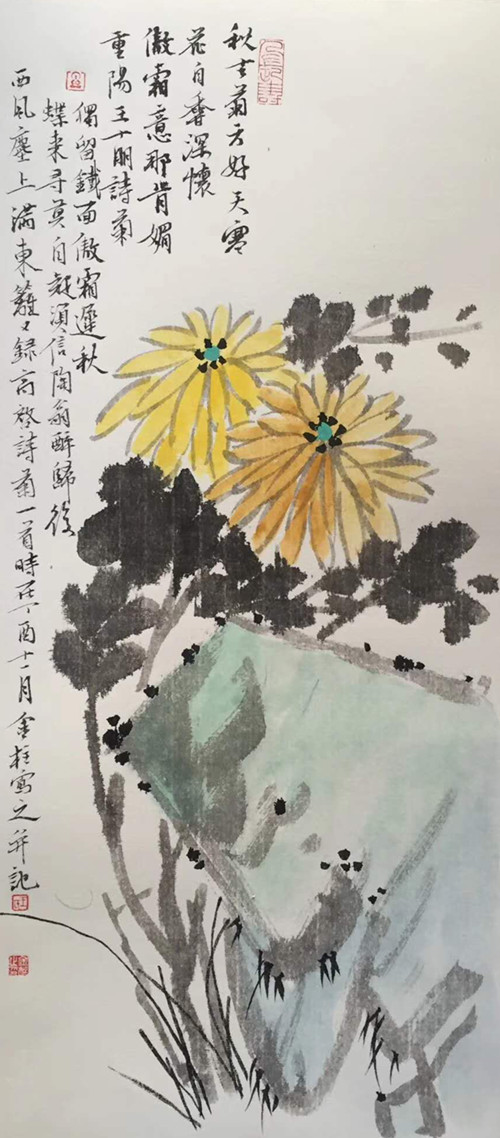 秋去菊方好天寒
花自香深懷
傲霜意那肯媚
重陽王十朋詩菊
獨留鐵面傲霜遲秋
蝶来尋莫自疑須信陶翁醉歸後
西風塵上滿東籬々録高啓詩菊一首時在丁酉十一月金柱寫之并記